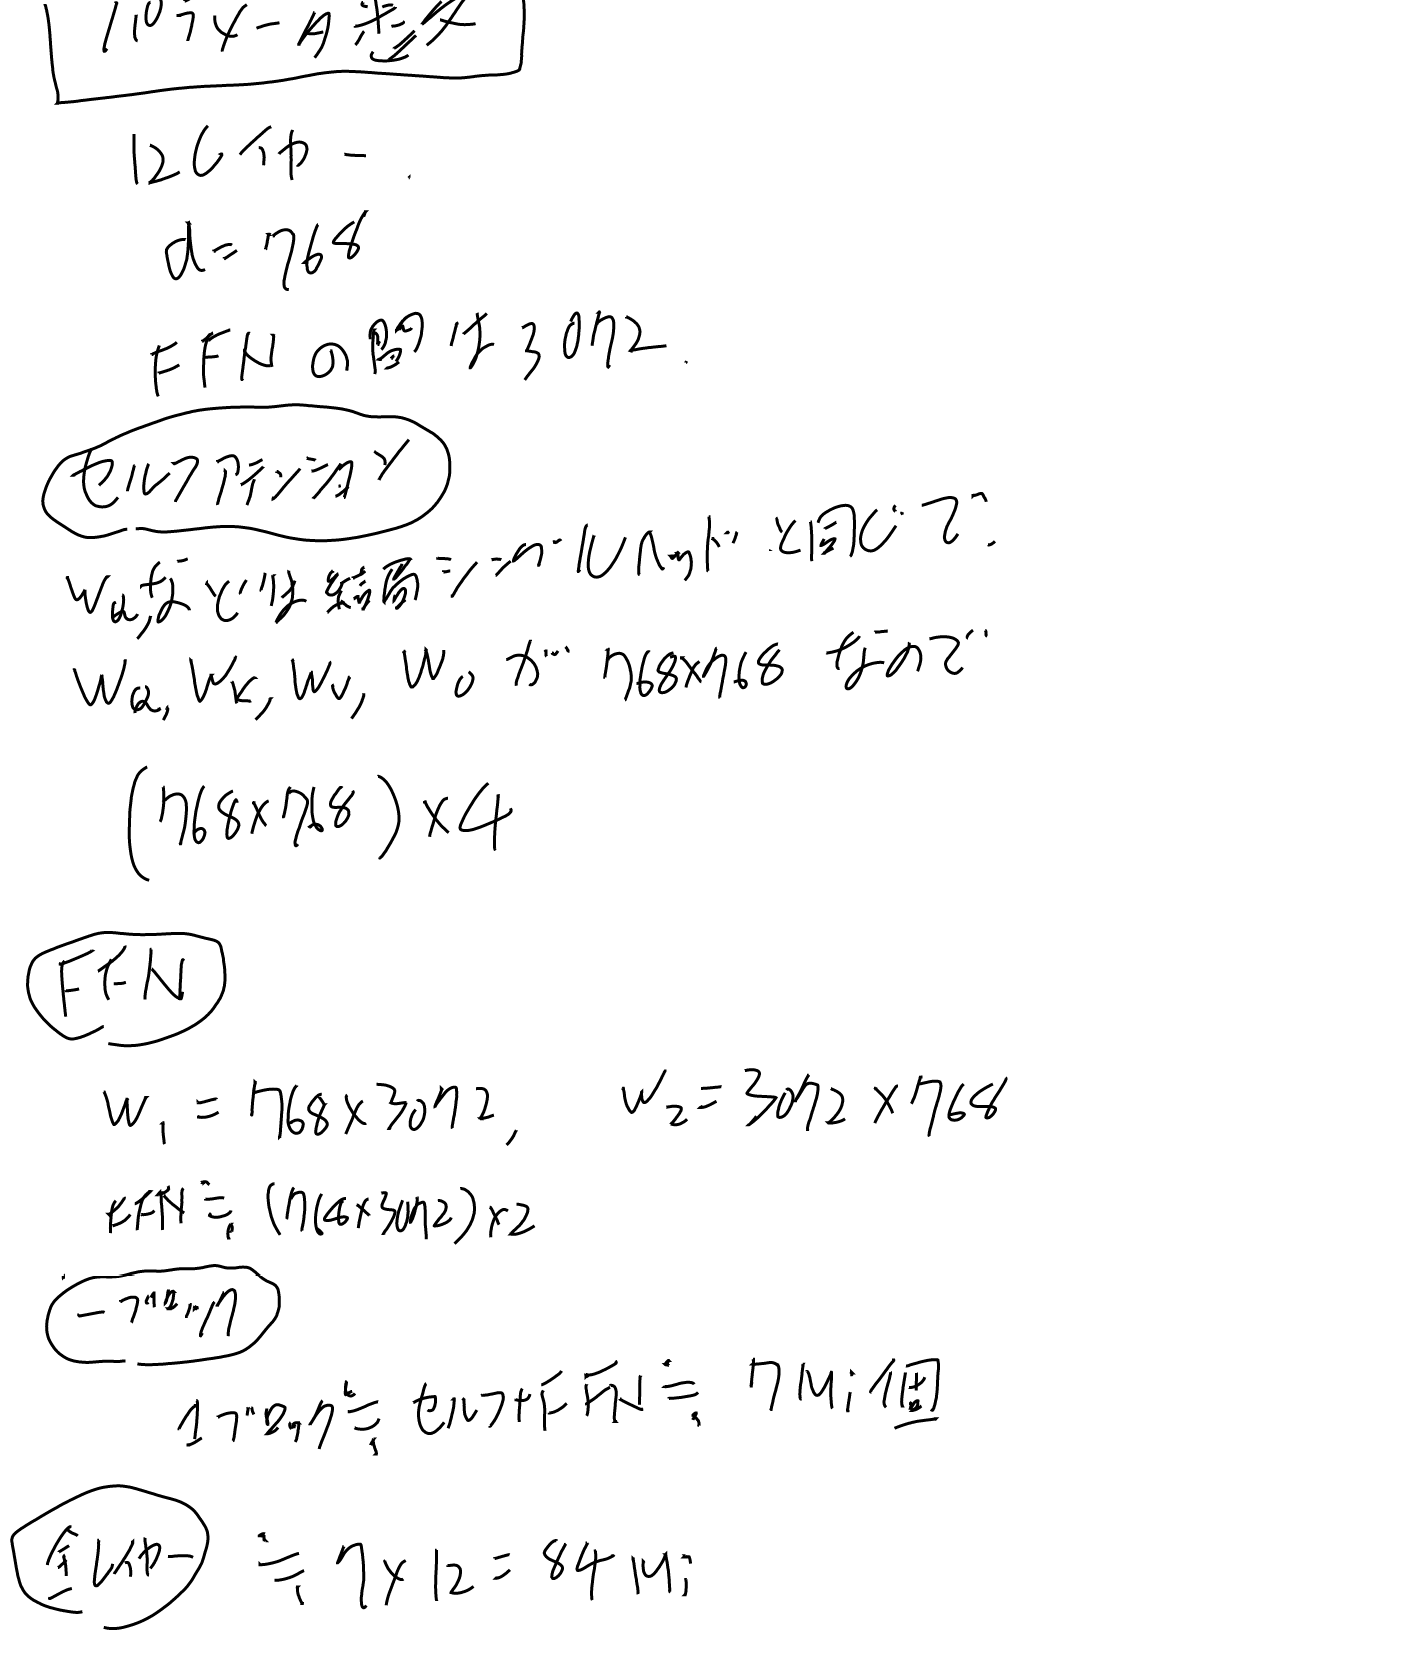 パラメータ数
12レイヤー.
d=768
FFNの間は3072.
セルフアテンション
WQ,などは結局シングルヘッドと同じで.
WQ, WK, WV, WO が 768×768 なので
(768×768)×4
FFN
W1 = 768×3072, W2 = 3072×768
FFN≒(768×3072)×2
一ブロック
1ブロック≒セルフ+FFN≒ 7Mi個
全レイヤー ≒ 7×12=84Mi